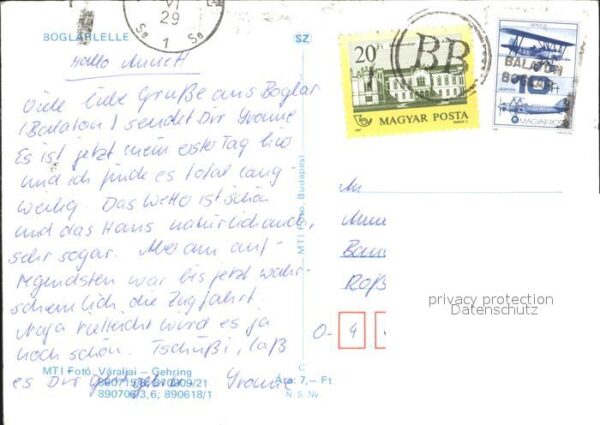 VI
29
Se 1 Se
BOGLÁRLELLE
SZ
20Ft
BB
MAGYAR POSTA
BALATON
BOG
10
MAGYAR POSTA
Hallo Annett
Viele liebe Grüße aus Boglar
(Balaton) sendet Dir Yvonne
Es ist jetzt mein erster Tag hier
und ich finde es total lang-
weilig. Das Wetter ist schön
und das Haus natürlich auch,
sehr sogar. Aber am auf-
regendsten war bis jetzt wahr-
scheinlich die Zugfahrt.
Naja vielleicht wird es ja
noch schön. Tschüßi, laß
es Dir gut gehen Yvonne
MTI Fotó, Budapest
An
Ann
Roß
O- 4
privacy protection
Datenschutz
MTI Fotó, Váraljai – Gehring
890706/3,6; 890618/1
C
Ára: 7,– Ft
N. S. Ny.